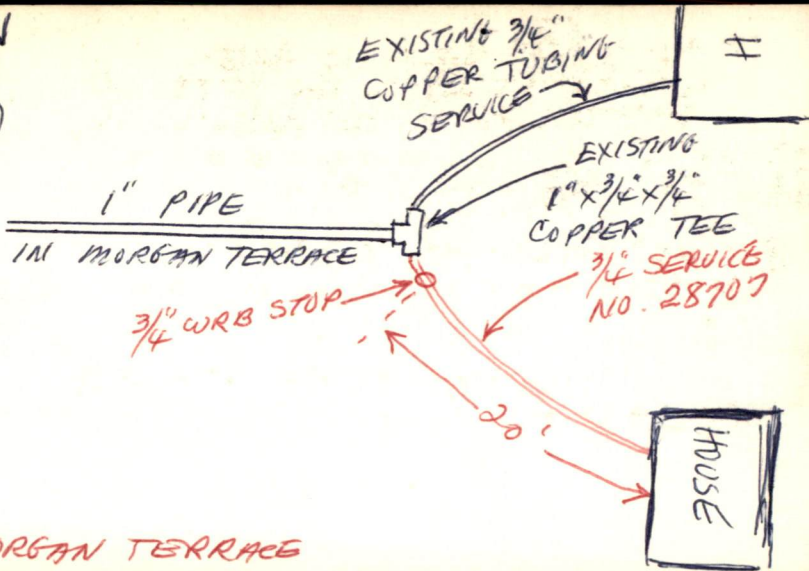 EXISTING 3/4"
COPPER TUBING
SERVICE
H
EXISTING
1" X 3/4" X 3/4"
COPPER TEE
1" PIPE
IN MORGAN TERRACE
3/4" SERVICE
NO. 28707
3/4" CURB STOP
20'
HOUSE
ORGAN TERRACE